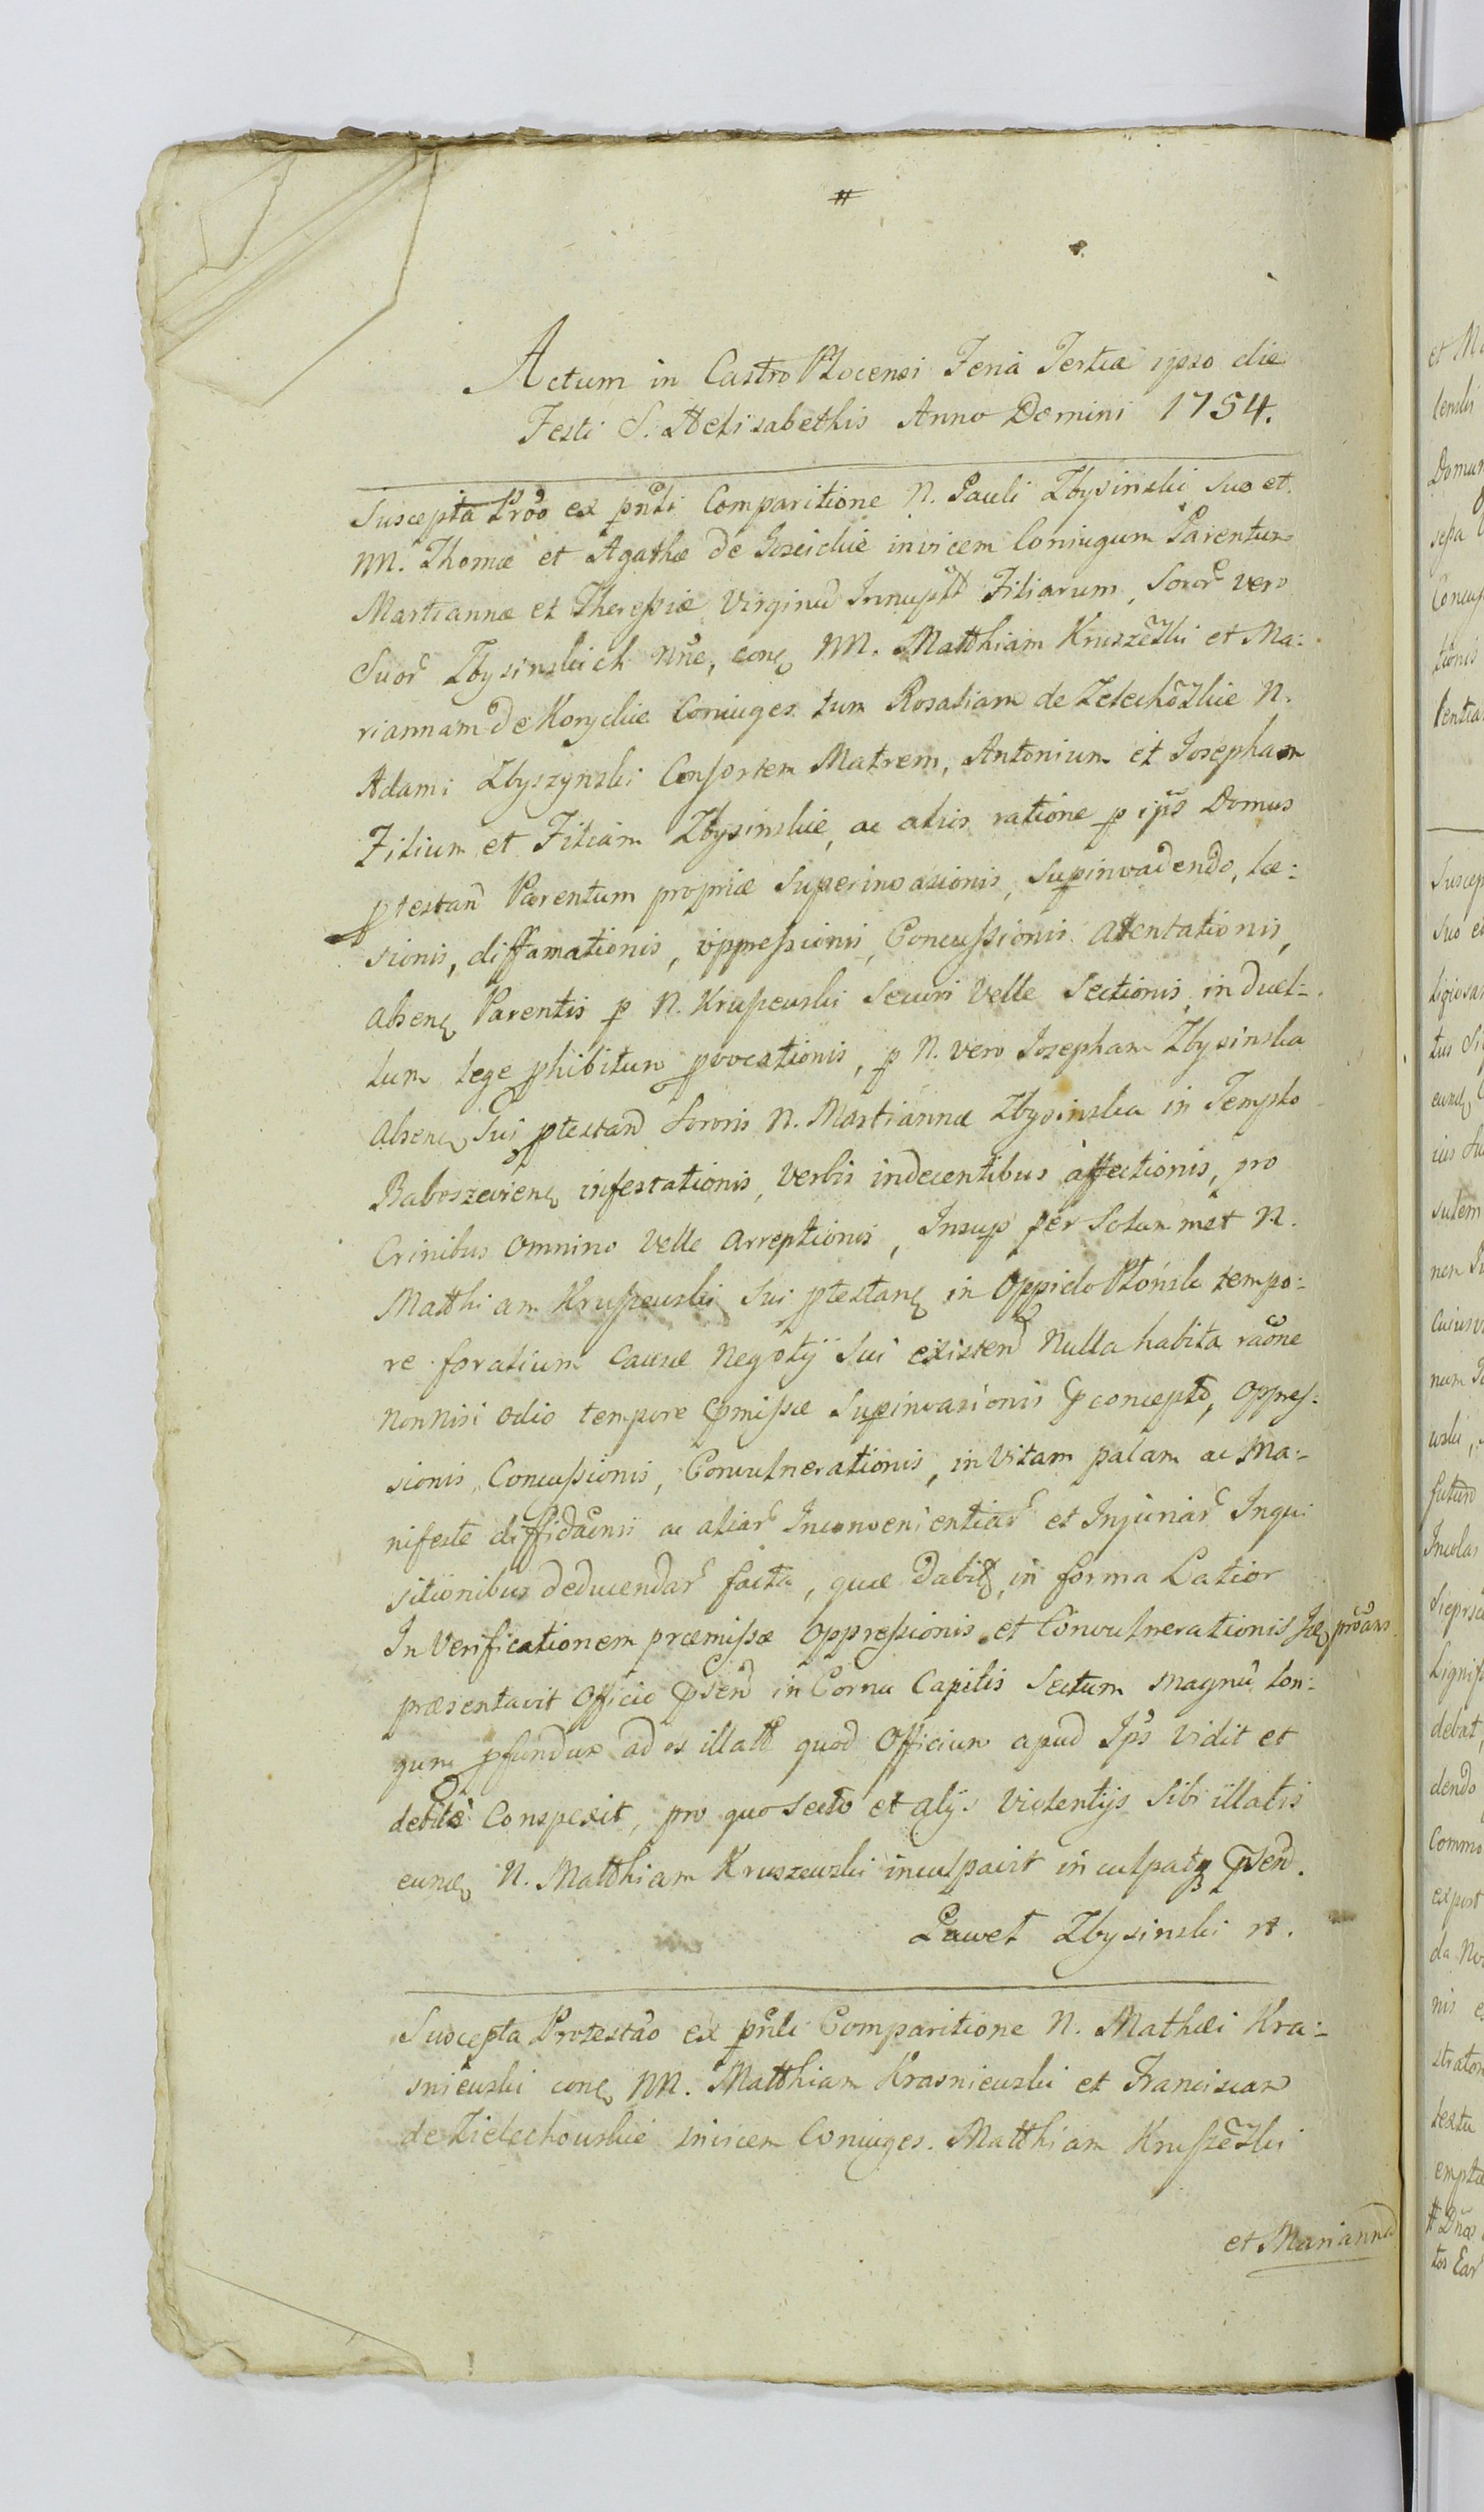 #
Actum in Castro Plocensi Feria Tertia ipso die
Festi S. Aelisabethis Anno Domini 1754.
Suscepta Prõo ex pñti Comparitione N. Pauli Zbysinski suo et
NN. Thomæ et Agathæ de invicem Coniugum Parentum
Martiannæ et Theressiæ Virginũ Innuptt Filiarum, Soror vero
Suor Zbysinskich nñe, conq NN. Matthiam Kruszẽski et Ma:
riannam de Koryckie Coniuges tum Rosaliam de Zelechõskie N.
Adami Zbyszynski Consortem Matrem, Antonium et Josepham
Filium et Filiam Zbysinskie, ac aliis ratione p ips Domus
ptestand Parentum propriæ Superinvasionis, Supinvadendo, læ:
sionis, diffamationis, oppressionis, Concussionis attentationis,
absenq Parentis p N. Kruszewski Securi Velle Sectionis, in duel:
lum lege phibitum pvocationis, p N. vero Josepham Zbysinska
absenq Sui ptestand Sororis N. Martiannæ Zbysinska in Templo
Baboszevienq infestationis, Verbis indecentibus affectionis, pro
Crinibus Omnino Velle Arreptionis, Insup per Solummet N.
Matthiam Kruszewski Sui ptestanq in Oppido Płońsk tempo:
re foralium causæ Negotÿ Sui existend Nulla habita raõne
Non nisi odio tempore pmissæ Supinvasionis pconcepto, Oppres:
sionis, Concussionis, Convulnerationis, in Vitam palam ac Ma:
nifeste diffidãonis ac aliar Inconvenientiar et Injuriar Inqui
sitionibus deducendar facta, quæ dabit in forma Latior
In Verificationem præmissæ Oppressionis et Convulnerationis
præsentavit Officio psend in Cornu Capitis Sectum Magnũ lon:
gum pfundum ad os illatt quod Officium apud Ips Vidit et
debite Conspexit, pro quo Secto et alÿs Violentÿs Sibi illatis
eunq N. Matthiam Kruszewski inculpavit in culpatq psend.
Paweł Zbysinski
Suscepta Protestão ex pñti Comparitione N. Mathæi Kra:
sniewski conq NN. Matthiam Krasniewski et Franciscam
de Zielechowskie invicem Coniuges. Matthiam Kruszẽski
et Mariannã